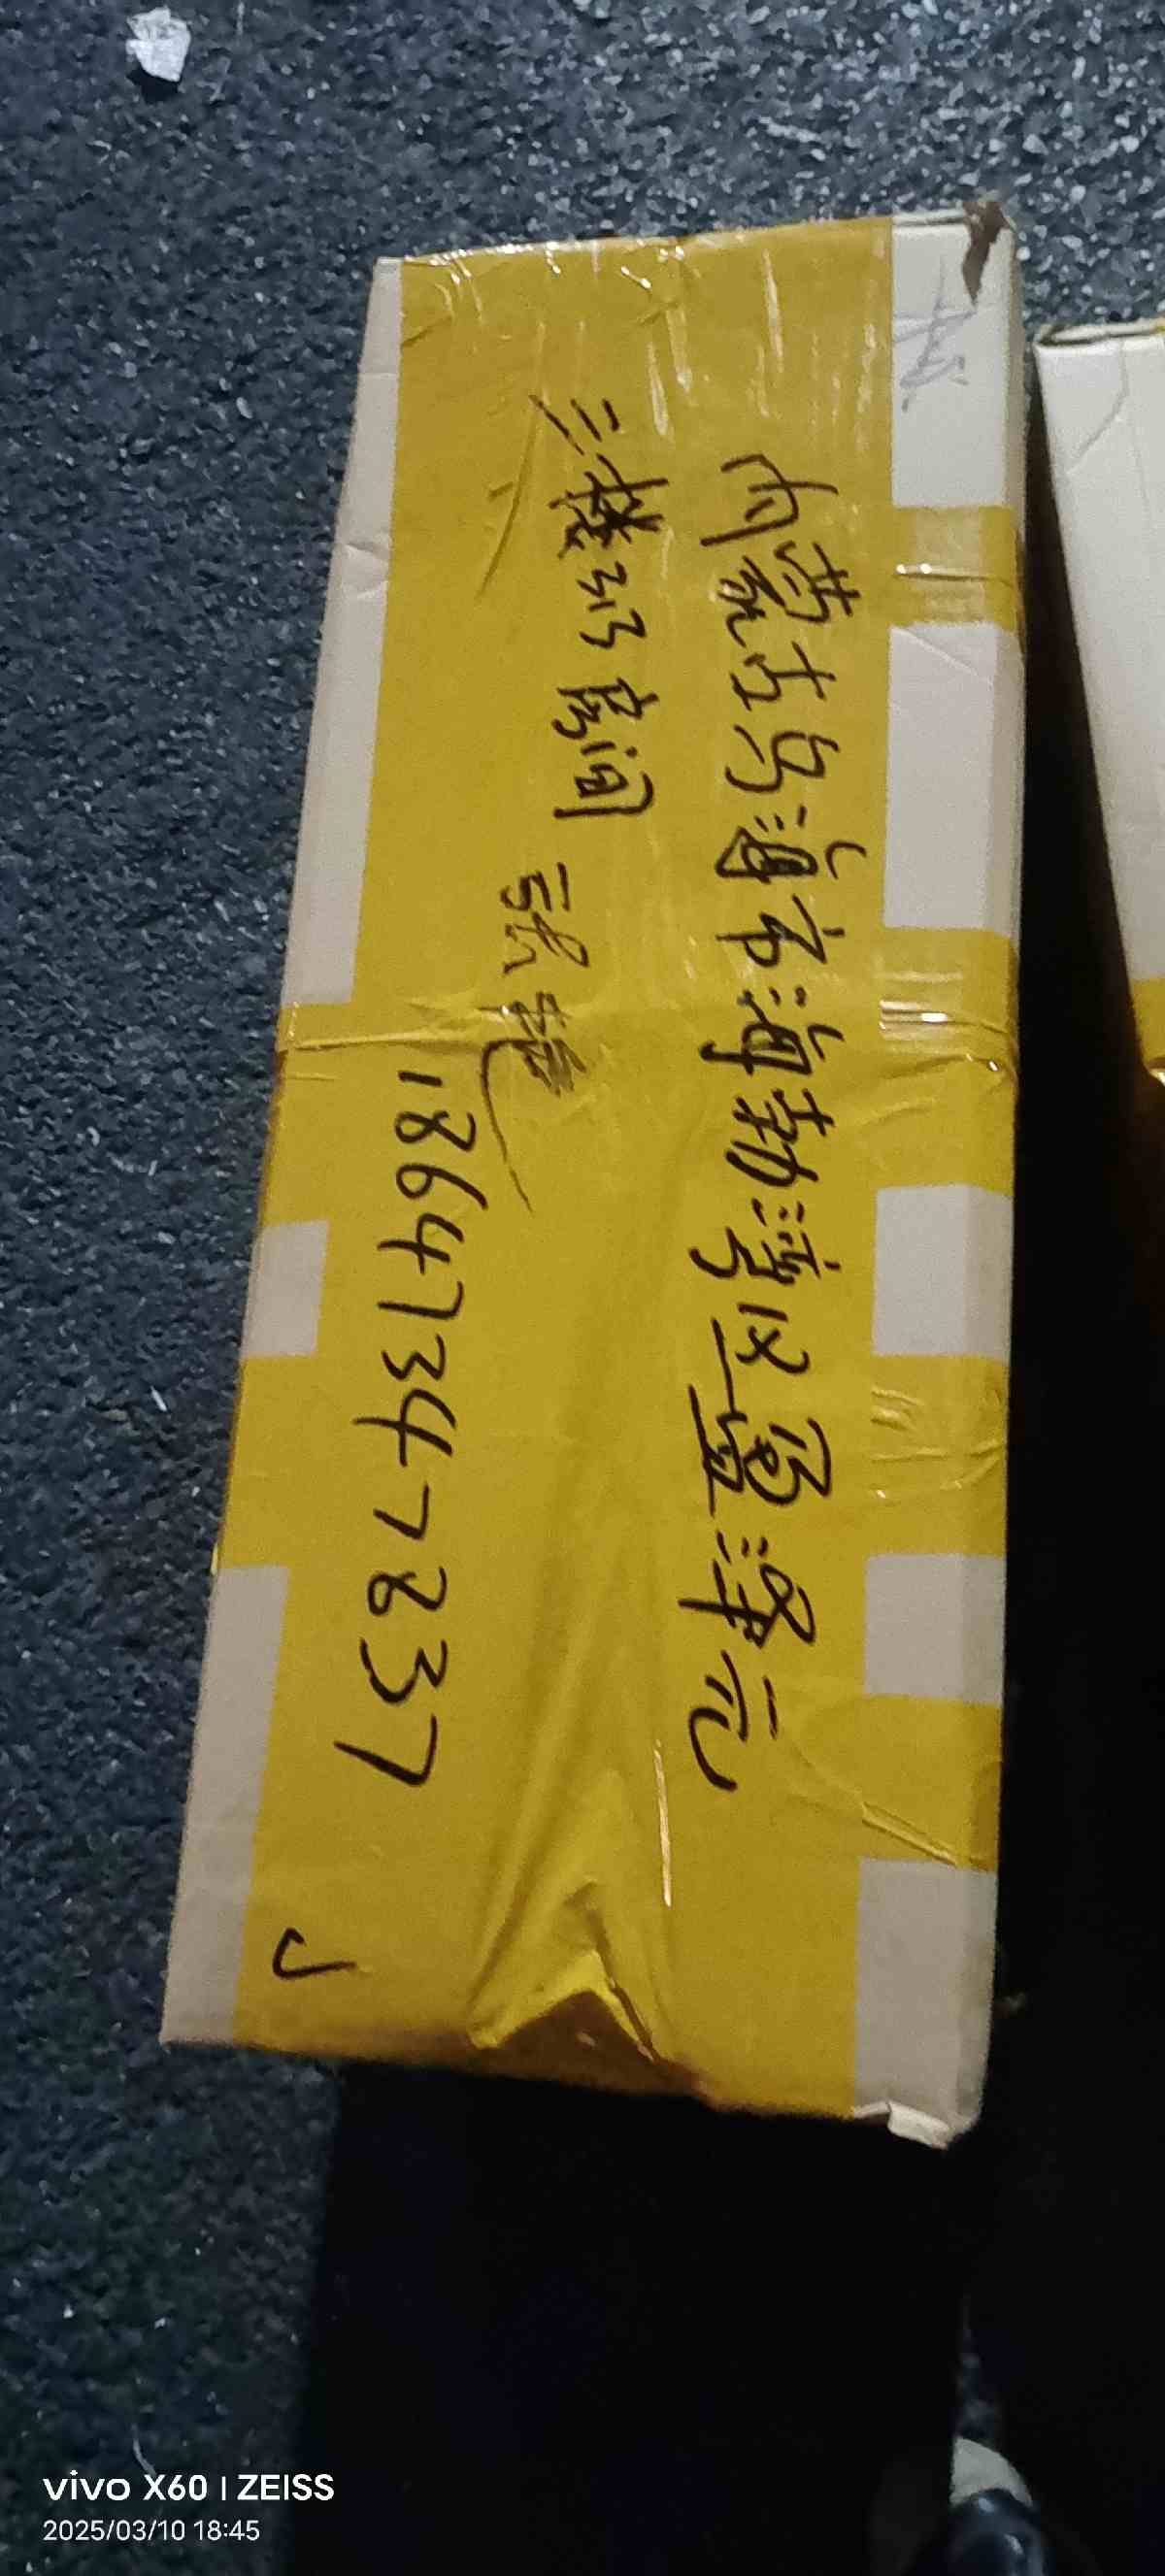 内蒙古乌海市海勃湾区盈泽元
三楼313房间
张
18647347837
vivo X60 | ZEISS
2025/03/10 18:45